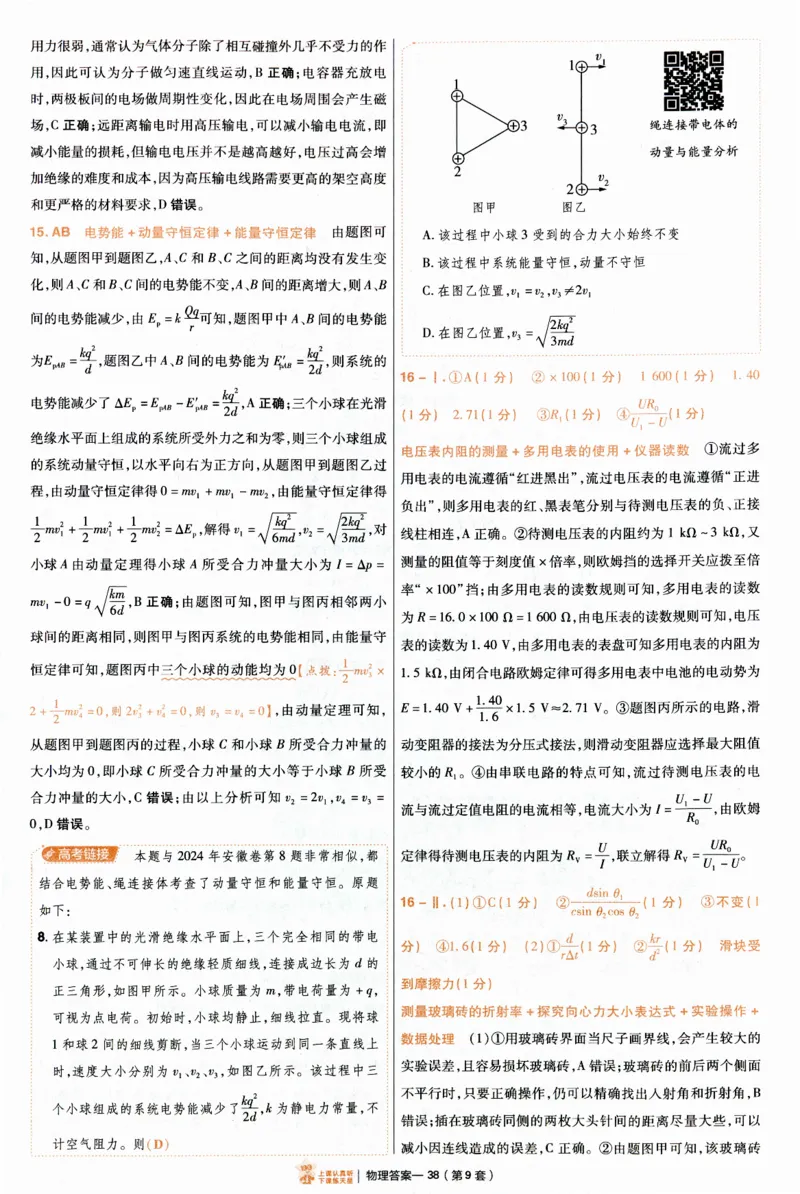 用力很弱,通常认为气体分子除了相互碰撞外几乎不受力的作
用,因此可认为分子做匀速直线运动,B 正确;电容器充放电
时,两极板间的电场做周期性变化,因此在电场周围会产生磁
场,C 正确;远距离输电时用高压输电,可以减小输电电流,即
减小能量的损耗,但输电电压并不是越高越好,电压过高会增
加绝缘的难度和成本,因为高压输电线路需要更高的架空高度
和更严格的材料要求,D 错误。
15. AB 电势能+动量守恒定律+能量守恒定律 由题图可
知,从题图甲到题图乙,A、C 和 B、C 之间的距离均没有发生变
化,则 A、C 和 B、C 间的电势能不变,A、B 间的距离增大,则 A、B
间的电势能减少,由 E_p = k Qq/r 可知,题图甲中 A、B 间的电势能
为 E_pAB = kq²/d,题图乙中 A、B 间的电势能为 E′_pAB = kq²/2d,则系统的
电势能减少了 ΔE_p = E_pAB − E′_pAB = kq²/2d,A 正确;三个小球在光滑
绝缘水平面上组成的系统所受外力之和为零,则三个小球组成
的系统动量守恒,以水平向右为正方向,从题图甲到题图乙过
程,由动量守恒定律得 0 = mv₁ + mv₁ − mv₂,由能量守恒定律得
1/2 mv₁² + 1/2 mv₁² + 1/2 mv₂² = ΔE_p,解得 v₁ = √(kq²/6md),v₂ = √(2kq²/3md),对
小球 A 由动量定理得小球 A 所受合力冲量大小为 I = Δp =
mv₁ − 0 = q√(km/6d),B 正确;由题图可知,图甲与图丙相邻两小
球间的距离相同,则图甲与图丙系统的电势能相同,由能量守
恒定律可知,题图丙中三个小球的动能均为 0【点拨: 1/2 mv₃² ×
2 + 1/2 mv₄² = 0,则 2v₃² + v₄² = 0,则 v₃ = v₄ = 0】,由动量定理可知,
从题图甲到题图丙的过程,小球 C 和小球 B 所受合力冲量的
大小均为 0,即小球 C 所受合力冲量的大小等于小球 B 所受
合力冲量的大小,C 错误;由以上分析可知 v₂ = 2v₁,v₄ = v₃ =
0,D 错误。
高考链接 本题与 2024 年安徽卷第 8 题非常相似,都
结合电势能、绳连接体考查了动量守恒和能量守恒。原题
如下:
8. 在某装置中的光滑绝缘水平面上,三个完全相同的带电
小球,通过不可伸长的绝缘轻质细线,连接成边长为 d 的
正三角形,如图甲所示。小球质量为 m,带电荷量为 +q,
可视为点电荷。初始时,小球均静止,细线拉直。现将球
1 和球 2 间的细线剪断,当三个小球运动到同一条直线上
时,速度大小分别为 v₁、v₂、v₃,如图乙所示。该过程中三
个小球组成的系统电势能减少了 kq²/2d,k 为静电力常量,不
计空气阻力。则(D)
1
3
2
图甲
1
v₁
v₃
3
2
v₂
图乙
绳连接带电体的
动量与能量分析
A. 该过程中小球 3 受到的合力大小始终不变
B. 该过程中系统能量守恒,动量不守恒
C. 在图乙位置,v₁ = v₂,v₃ ≠ 2v₁
D. 在图乙位置,v₃ = √(2kq²/3md)
16-Ⅰ. ①A(1 分) ②×100(1 分) 1 600(1 分) 1.40
(1 分) 2.71(1 分) ③R₁(1 分) ④UR₀/(U₁−U)(1 分)
电压表内阻的测量+多用电表的使用+仪器读数 ①流过多
用电表的电流遵循“红进黑出”,流过电压表的电流遵循“正进
负出”,则多用电表的红、黑表笔分别与待测电压表的负、正接
线柱相连,A 正确。②待测电压表的内阻约为 1 kΩ~3 kΩ,又
测量的阻值等于刻度值×倍率,则欧姆挡的选择开关应拨至倍
率“×100”挡;由多用电表的读数规则可知,多用电表的读数
为 R = 16.0×100 Ω = 1 600 Ω,由电压表的读数规则可知,电压
表的读数为 1.40 V,由多用电表的表盘可知多用电表的内阻为
1.5 kΩ,由闭合电路欧姆定律可得多用电表中电池的电动势为
E = 1.40 V + 1.40/1.6 × 1.5 V ≈ 2.71 V。③题图丙所示的电路,滑
动变阻器的接法为分压式接法,则滑动变阻器应选择最大阻值
较小的 R₁。④由串联电路的特点可知,流过待测电压表的电
流与流过定值电阻的电流相等,电流大小为 I = (U₁−U)/R₀,由欧姆
定律得待测电压表的内阻为 R_V = U/I,联立解得 R_V = UR₀/(U₁−U)。
16-Ⅱ. (1)①C(1 分) ②dsin θ₁/(csin θ₂cos θ₂)(1 分) ③不变(1
分) ④1.6(1 分) (2)①d/(rΔt)(1 分) ②kr/d²(1 分) 滑块受
到摩擦力(1 分)
测量玻璃砖的折射率+探究向心力大小表达式+实验操作+
数据处理 (1)①用玻璃砖界面当尺子画界线,会产生较大的
实验误差,且容易损坏玻璃砖,A 错误;玻璃砖的前后两个侧面
不平行时,只要正确操作,仍可以精确找出入射角和折射角,B
错误;插在玻璃砖同侧的两枚大头针间的距离尽量大些,可以
减小因连线造成的误差,C 正确。②由题图甲可知,该玻璃砖
上课认真听
下课练天星
物理答案—38(第 9 套)